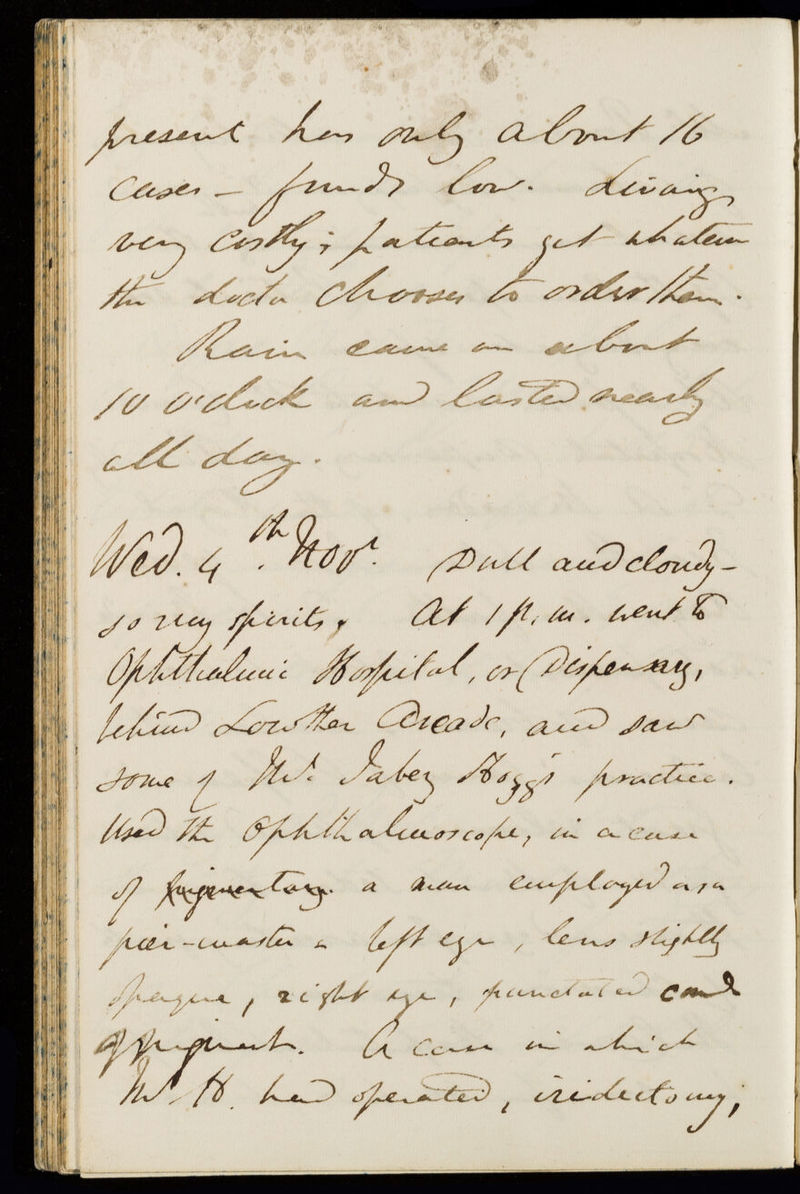 present has only about 16
cases – funds low. Living
very costly; patients get whatever
the doctor chooses to order them.
Rain came on about
10 o'clock and lasted nearly
all day.
Wed. 4th. Novr. Dull and cloudy –
so my spirits. At 1 p.m. went to
Ophthalmic Hospital, or Dispensary,
behind Lowther Arcade, and saw
some of Mr. Jabez Hogg's practice.
Used the Ophthalmoscope, in a case
of a man employed as a
pier-master – left eye, lens slightly
opaque, right eye, punctated cond
of pigment. A case in which
Mr H. had operated, iridectomy,